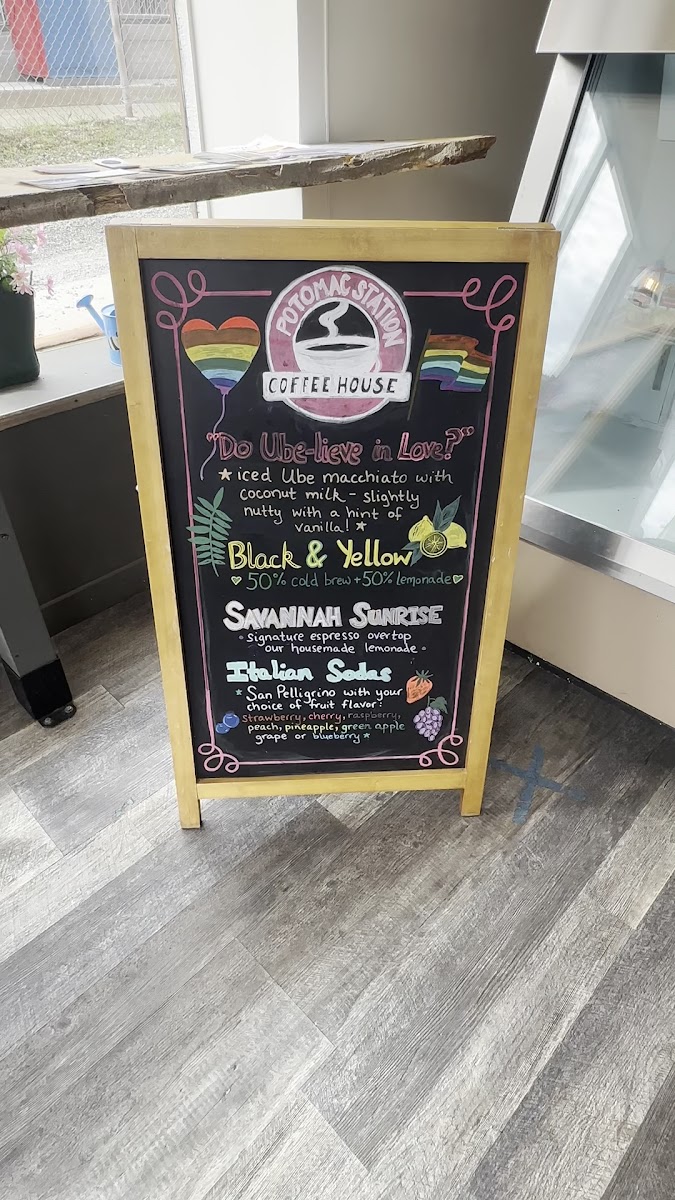 POTOMAC STATION
COFFEE HOUSE
"Do Ube-lieve in Love?"
★ iced Ube macchiato with
coconut milk - slightly
nutty with a hint of
vanilla! ★
Black & Yellow
♥ 50% cold brew + 50% lemonade ♥
SAVANNAH SUNRISE
• Signature espresso over top
our housemade lemonade •
Italian Sodas
★ San Pelligrino with your
choice of fruit flavor:
strawberry, cherry, raspberry,
peach, pineapple, green apple
grape or blueberry ★